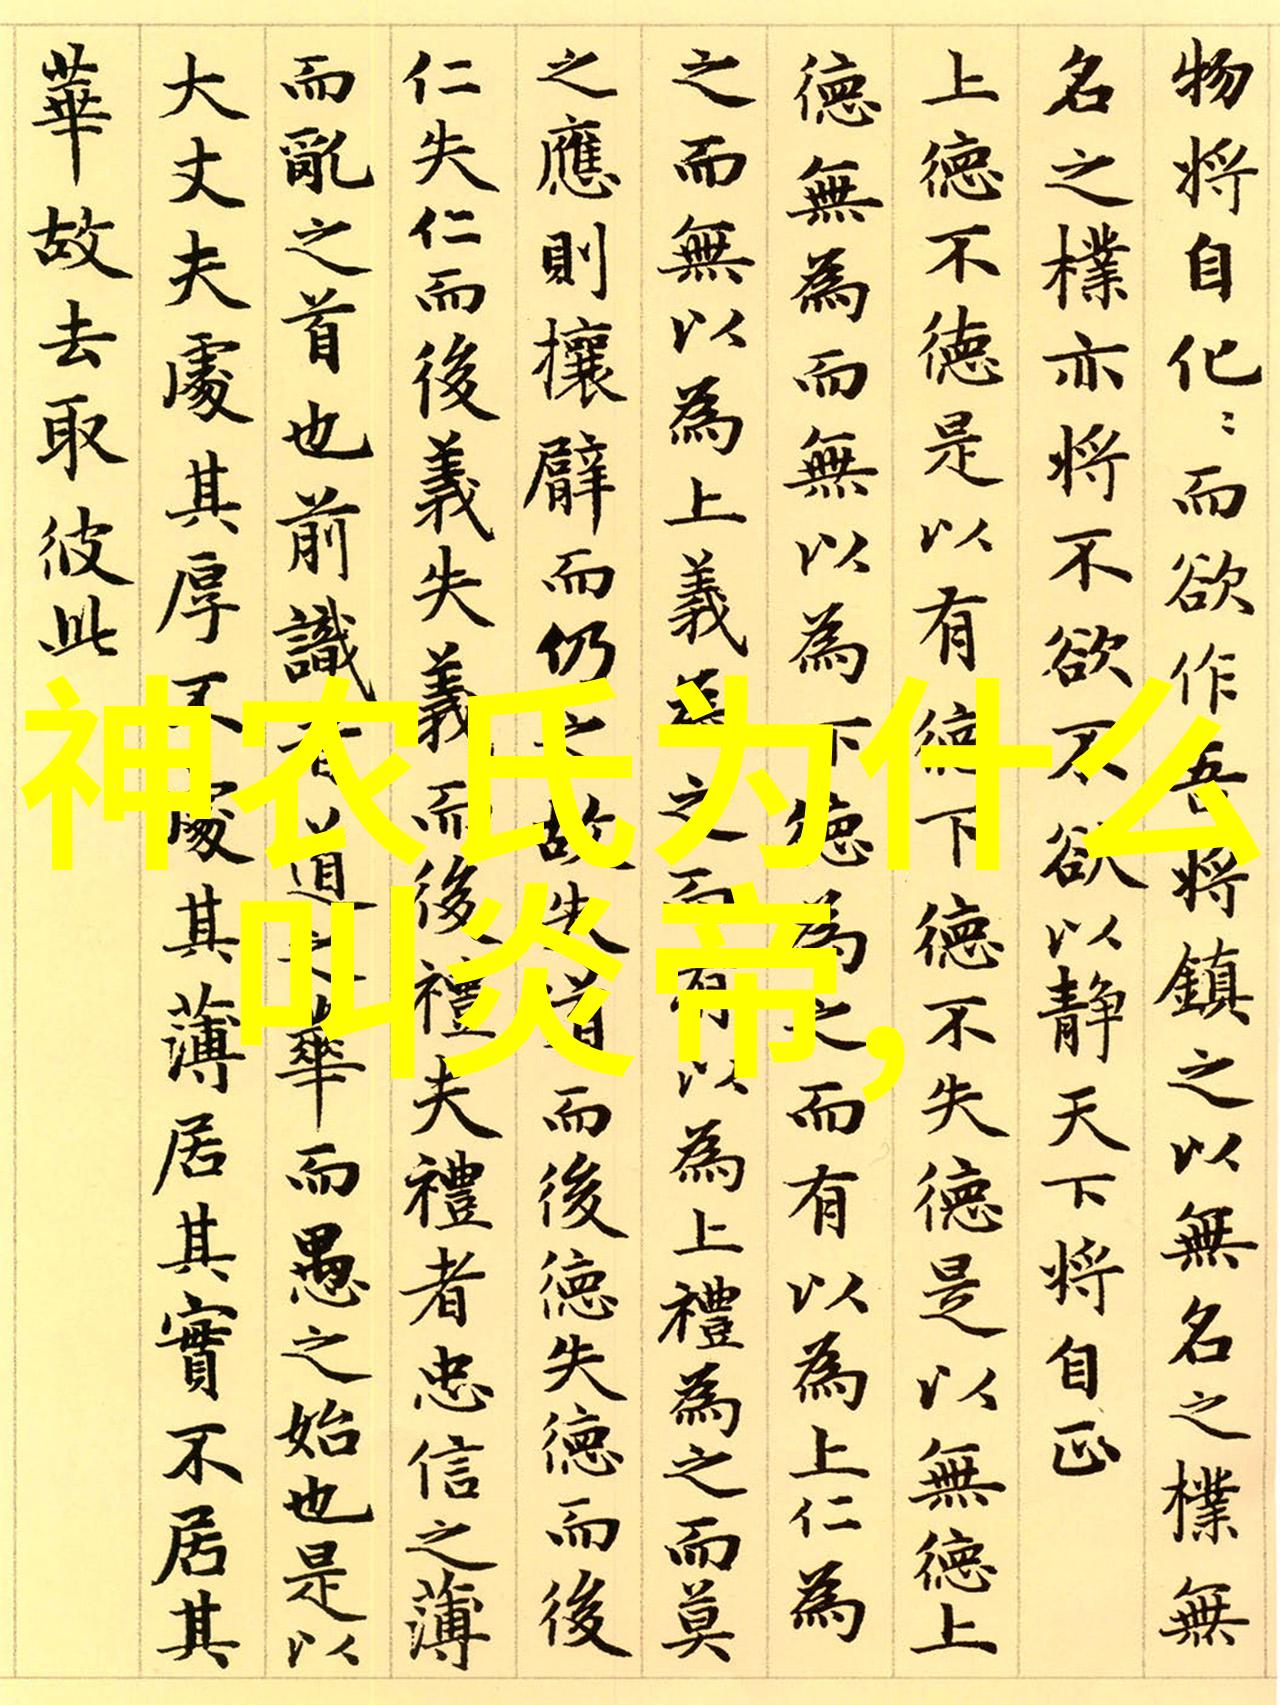 物将自化〻而欲作吾将鎮之以無名之樸無
名之樸亦将不欲不欲以静天下将自正
上德不德是以有德下德不失德是以無德上
德無為而無以為下德為之而有以為上仁為
之而無以為上義為之而有以為上禮為之而莫
之應則攘臂而仍之故失道而後德失德而後
仁失仁而後義失義而後禮夫禮者忠信之薄
而亂之首也前識者道之華而愚之始也是以
大丈夫處其厚不處其薄居其實不居其
華故去取彼此
神农氏为什么
叫炎帝,